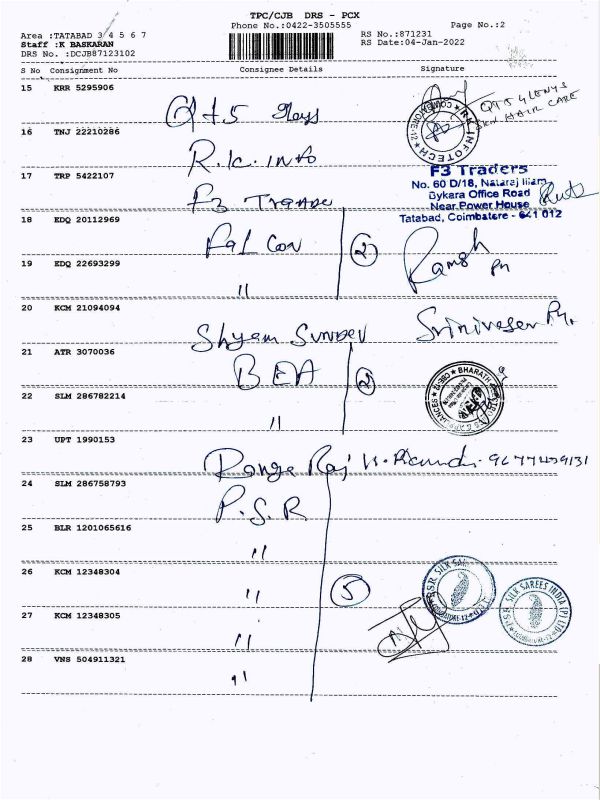 TPC/CJB DRS - PCX
Phone No.:0422-3505555 Page No.:2
Area :TATABAD 3 4 5 6 7 RS No.:871231
Staff :K BASKARAN RS Date:04-Jan-2022
DRS No. :DCJB87123102
S No Consignment No Consignee Details Signature
15 KRR 5295906
SKN HAIR CARE
16 TNJ 22210286
R.K. INFO
RK INFOTECH ★ COIMBATORE-12 ★
17 TRP 5422107
F3 Traders
No. 60 D/18, Nataraj Illam
Bykara Office Road
Near Power House
Tatabad, Coimbatore - 641 012
18 EDQ 20112969
Fal Con 2 Ramesh
19 EDQ 22693299
"
20 KCM 21094094
Shyam Sunder Srinivasan
21 ATR 3070036
BEA 2
22 SLM 286782214
"
23 UPT 1990153
Ranga Raj
24 SLM 286758793
P.S.R
25 BLR 1201065616
"
26 KCM 12348304
" 5
SILK SAREES INDIA (P) LTD
27 KCM 12348305
"
28 VNS 504911321
"